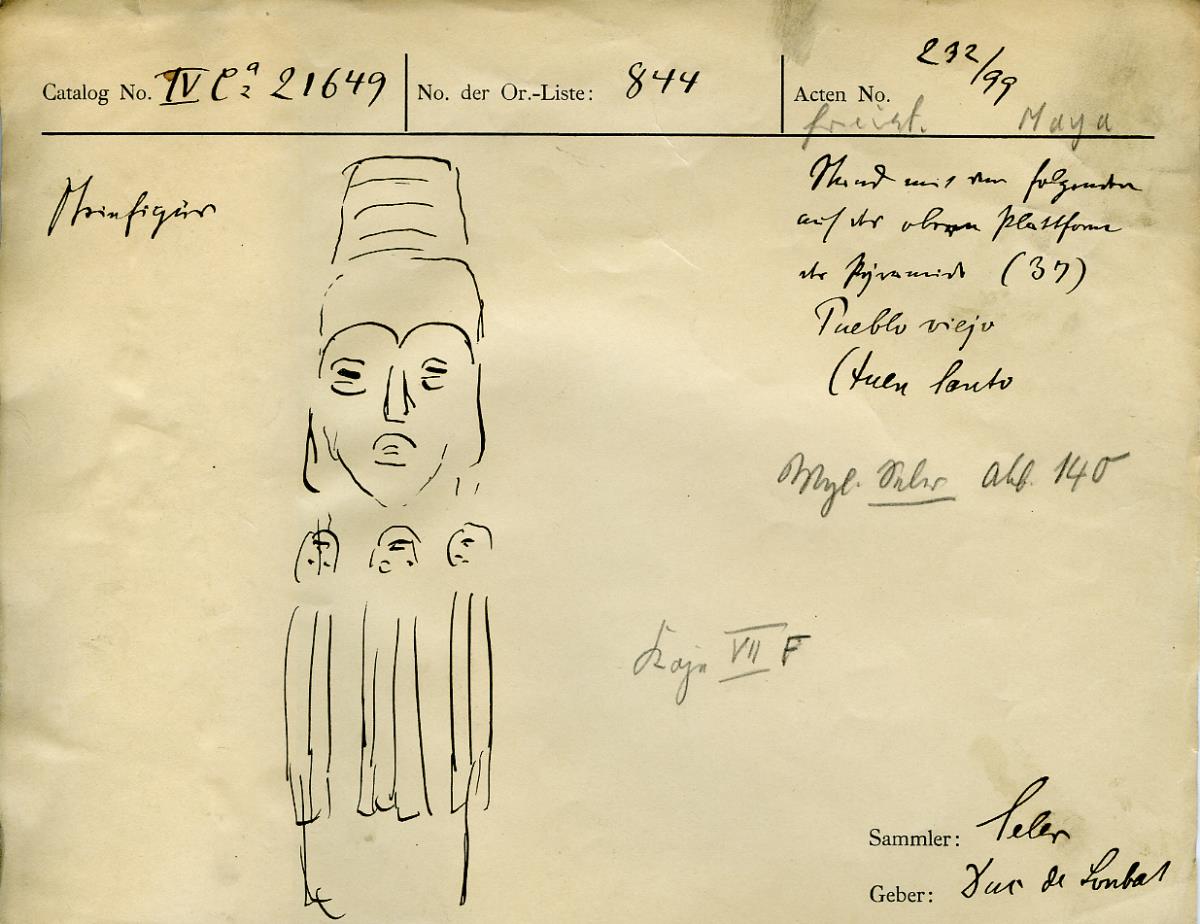 Catalog No. IV Ca 21649
2
No. der Or.-Liste: 844
Acten No. 232/99
Maya
Steinfigur
Stand mit den folgenden
auf der oberen Plattform
der Pyramide (37)
Pueblo viejo
(Quen Santo
Vgl. Seler Abb. 140
VII F
Sammler: Seler
Geber: Duc de Loubat